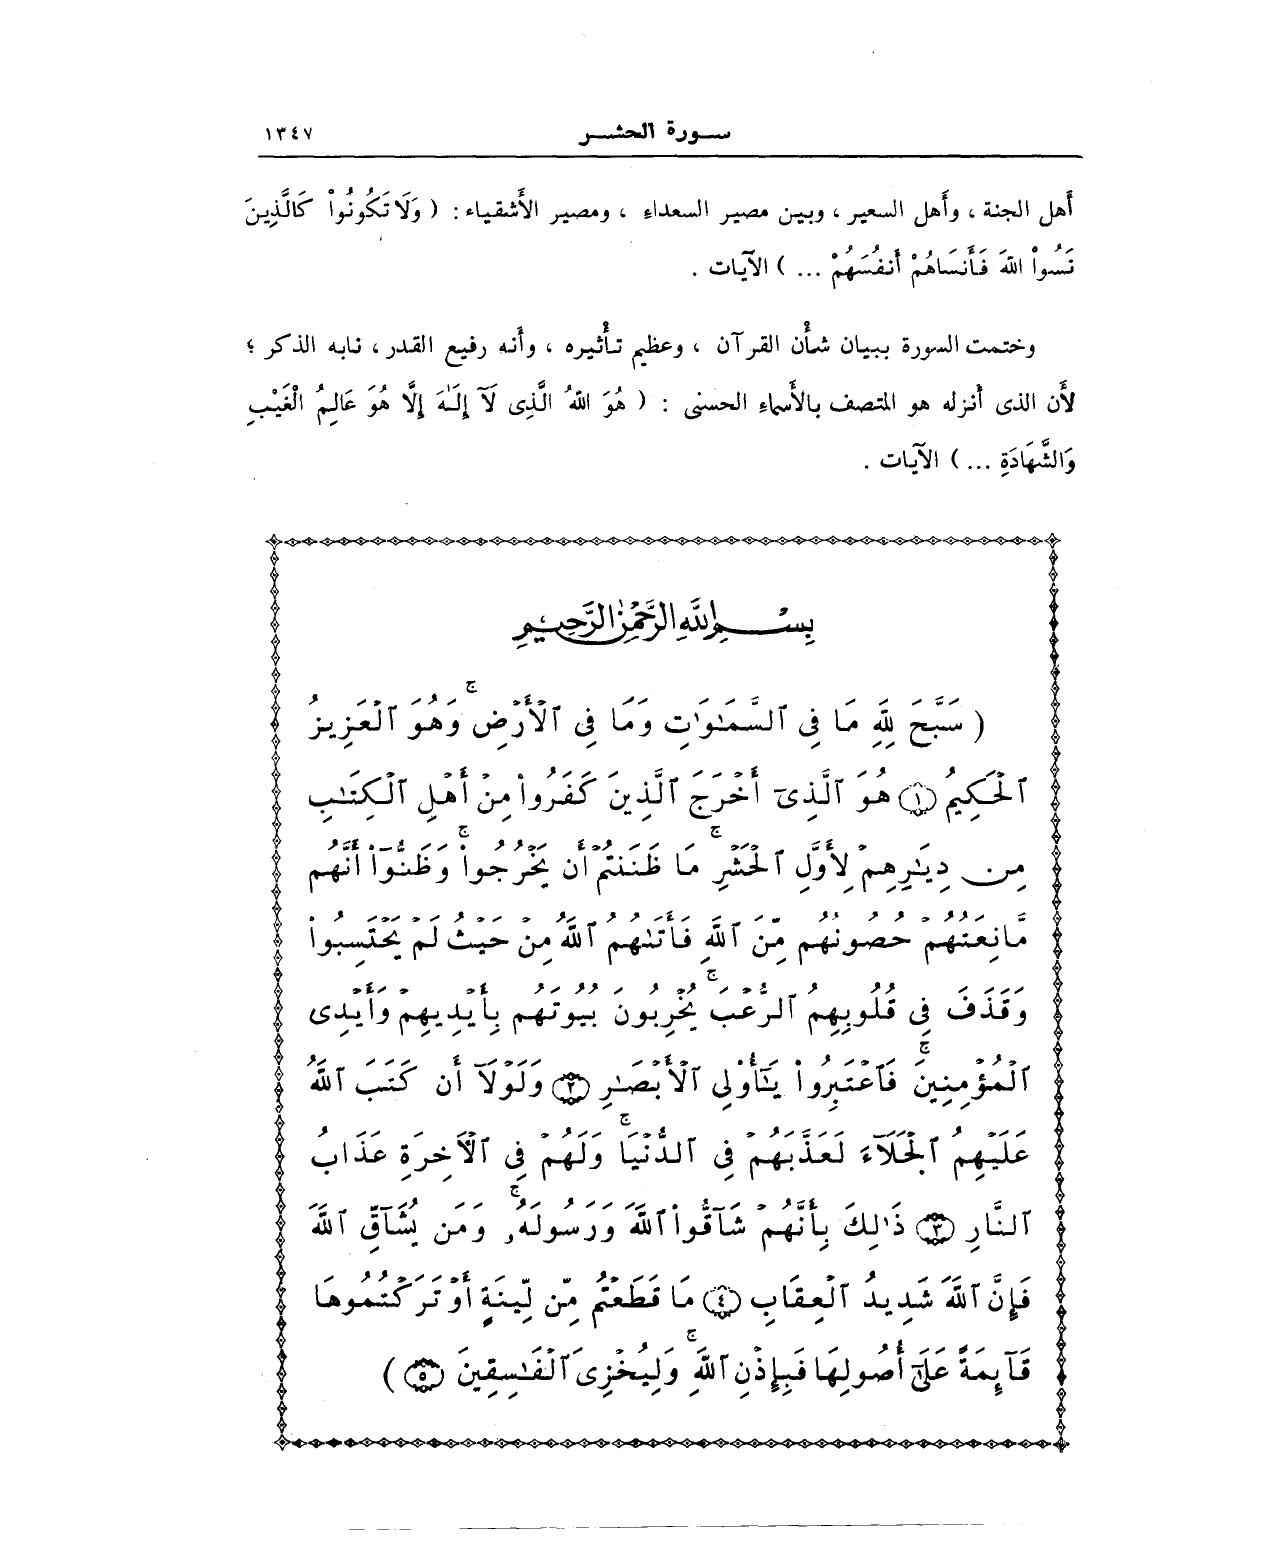 سورة الحشر ١٣٤٧
أهل الجنة ، وأهل السعير ، وبين مصير السعداء ، ومصير الأشقياء : ( وَلَا تَكُونُواْ كَالَّذِينَ
نَسُواْ اللهَ فَأَنسَاهُمْ أَنفُسَهُمْ ... ) الآيات .
وختمت السورة ببيان شأن القرآن ، وعظيم تأثيره ، وأنه رفيع القدر ، نابه الذكر ؛
لأن الذى أنزله هو المتصف بالأسماء الحسنى : ( هُوَ اللهُ الَّذِى لَآ إِلَـٰهَ إِلَّا هُوَ عَالِمُ الْغَيْبِ
وَالشَّهَادَةِ ... ) الآيات .
بِسْمِ اللَّهِ الرَّحْمَـٰنِ الرَّحِيمِ
( سَبَّحَ لِلَّهِ مَا فِى ٱلسَّمَـٰوَٰتِ وَمَا فِى ٱلْأَرْضِ ۚ وَهُوَ ٱلْعَزِيزُ
ٱلْحَكِيمُ ١ هُوَ ٱلَّذِىٓ أَخْرَجَ ٱلَّذِينَ كَفَرُوا۟ مِنْ أَهْلِ ٱلْكِتَـٰبِ
مِن دِيَـٰرِهِمْ لِأَوَّلِ ٱلْحَشْرِ ۚ مَا ظَنَنتُمْ أَن يَخْرُجُوا۟ ۖ وَظَنُّوٓا۟ أَنَّهُم
مَّانِعَتُهُمْ حُصُونُهُم مِّنَ ٱللَّهِ فَأَتَىٰهُمُ ٱللَّهُ مِنْ حَيْثُ لَمْ يَحْتَسِبُوا۟
وَقَذَفَ فِى قُلُوبِهِمُ ٱلرُّعْبَ ۚ يُخْرِبُونَ بُيُوتَهُم بِأَيْدِيهِمْ وَأَيْدِى
ٱلْمُؤْمِنِينَ ۚ فَٱعْتَبِرُوا۟ يَـٰٓأُو۟لِى ٱلْأَبْصَـٰرِ ٢ وَلَوْلَآ أَن كَتَبَ ٱللَّهُ
عَلَيْهِمُ ٱلْجَلَآءَ لَعَذَّبَهُمْ فِى ٱلدُّنْيَا ۚ وَلَهُمْ فِى ٱلْـَٔاخِرَةِ عَذَابُ
ٱلنَّارِ ٣ ذَٰلِكَ بِأَنَّهُمْ شَآقُّوا۟ ٱللَّهَ وَرَسُولَهُۥ ۚ وَمَن يُشَآقِّ ٱللَّهَ
فَإِنَّ ٱللَّهَ شَدِيدُ ٱلْعِقَابِ ٤ مَا قَطَعْتُم مِّن لِّينَةٍ أَوْ تَرَكْتُمُوهَا
قَآئِمَةً عَلَىٰٓ أُصُولِهَا فَبِإِذْنِ ٱللَّهِ ۚ وَلِيُخْزِىَ ٱلْفَـٰسِقِينَ ٥ )